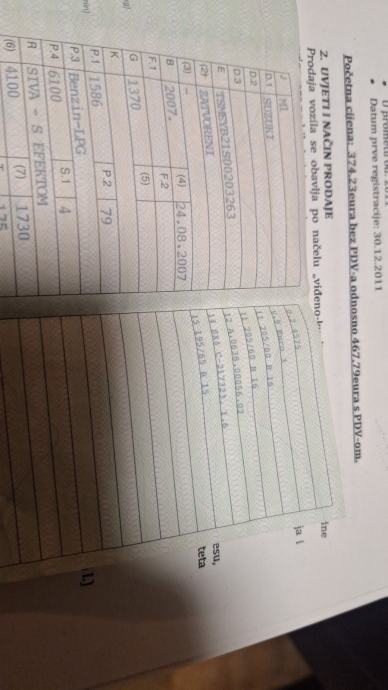 U prometu od: 2011
Datum prve registracije: 30.12.2011
Početna cijena: 374,23eura bez PDV-a odnosno 467,79eura s PDV-om.
2. UVJETI I NAČIN PRODAJE
Prodaja vozila se obavlja po načelu „viđeno-k
J M1
D.1 SUZUKI
D.2
D.3
E TSMEYB21S00203263
(2) ZATVORENI
(3) - (4) 24.08.2007
B 2007. F.2
F.1 (5)
G 1370
K
P.1 1586 P.2 79
P.3 Benzin-LPG
P.4 6100 S.1 4
R SIVA - S EFEKTOM
(6) 4100 (7) 1730
T 175
V.9 Euro 3
11 205/60 R 16
11 205/60 R 16
15 195/65 R 15
ine
ja i
esu,
teta